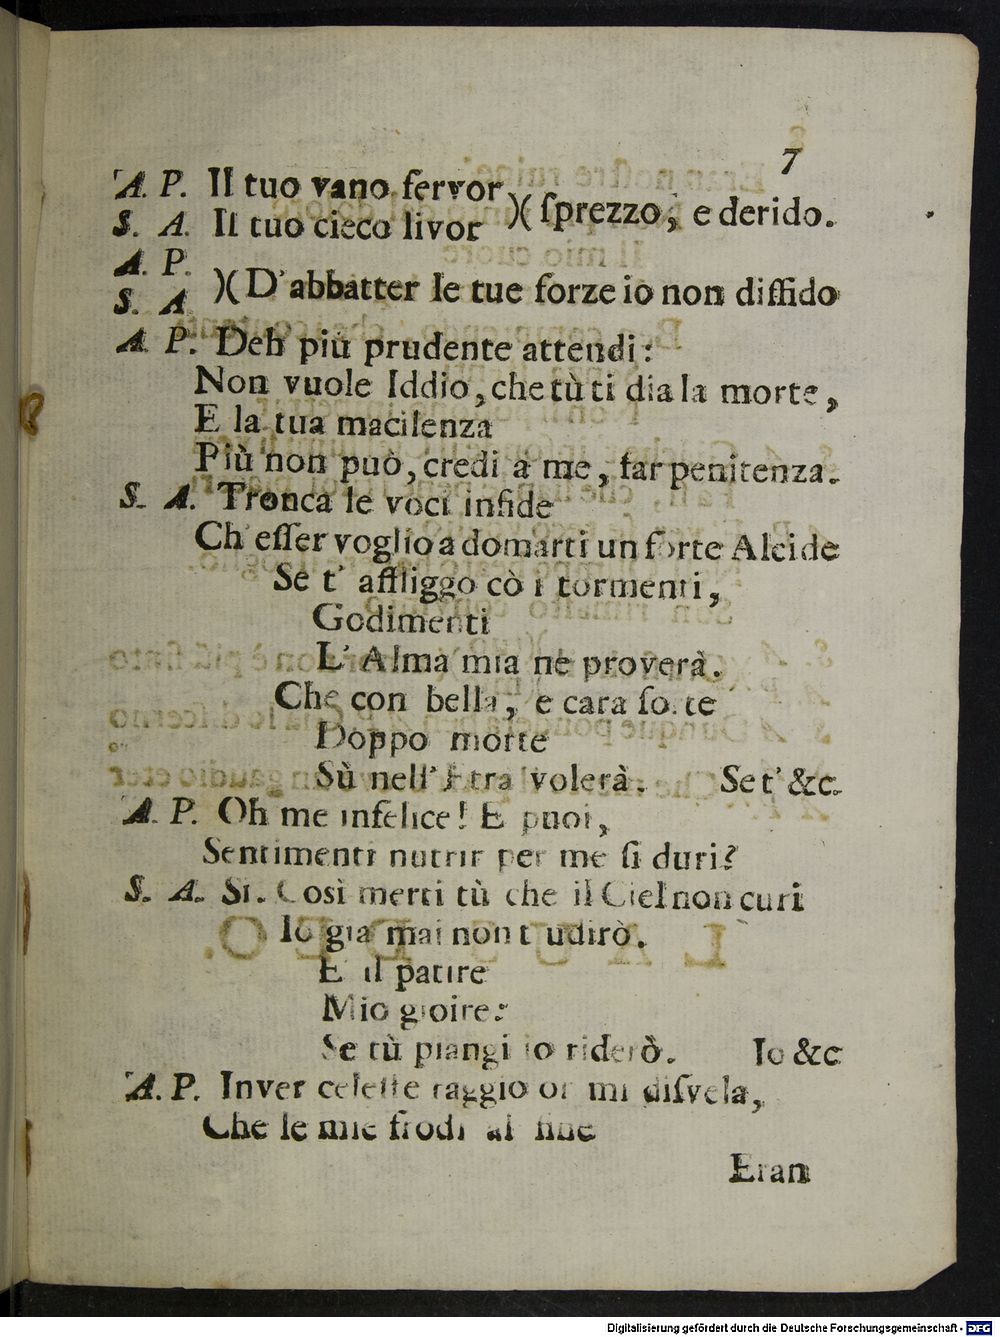 7
A. P. Il tuo vano fervor
S. A. Il tuo cieco livor )( ſprezzo, e derido.
A. P.
S. A )( D'abbatter le tue forze io non diffido
A. P. Deh più prudente attendi:
Non vuole Iddio, che tù ti dia la morte,
E la tua macilenza
Più non può, credi à me, far penitenza.
S. A. Tronca le voci infide
Ch'eſſer voglio a domarti un forte Alcide
Se t'affliggo cò i tormenti,
Godimenti
L'Alma mia nè proverà.
Che con bella, e cara ſorte
Doppo morte
Sù nell'Etra volerà. Se t'&c.
A. P. Oh me infelice! E puoi,
Sentimenti nutrir per me ſi duri?
S. A. Sì. Così merti tù che il Ciel non curi
Io gia mai non t'udirò.
E il patire
Mio gioire:
Se tù piangi io riderò. Io &c
A. P. Inver celeſte raggio or mi diſvela,
Che le mie frodi al fine
Eran
Digitalisierung gefördert durch die Deutsche Forschungsgemeinschaft - DFG